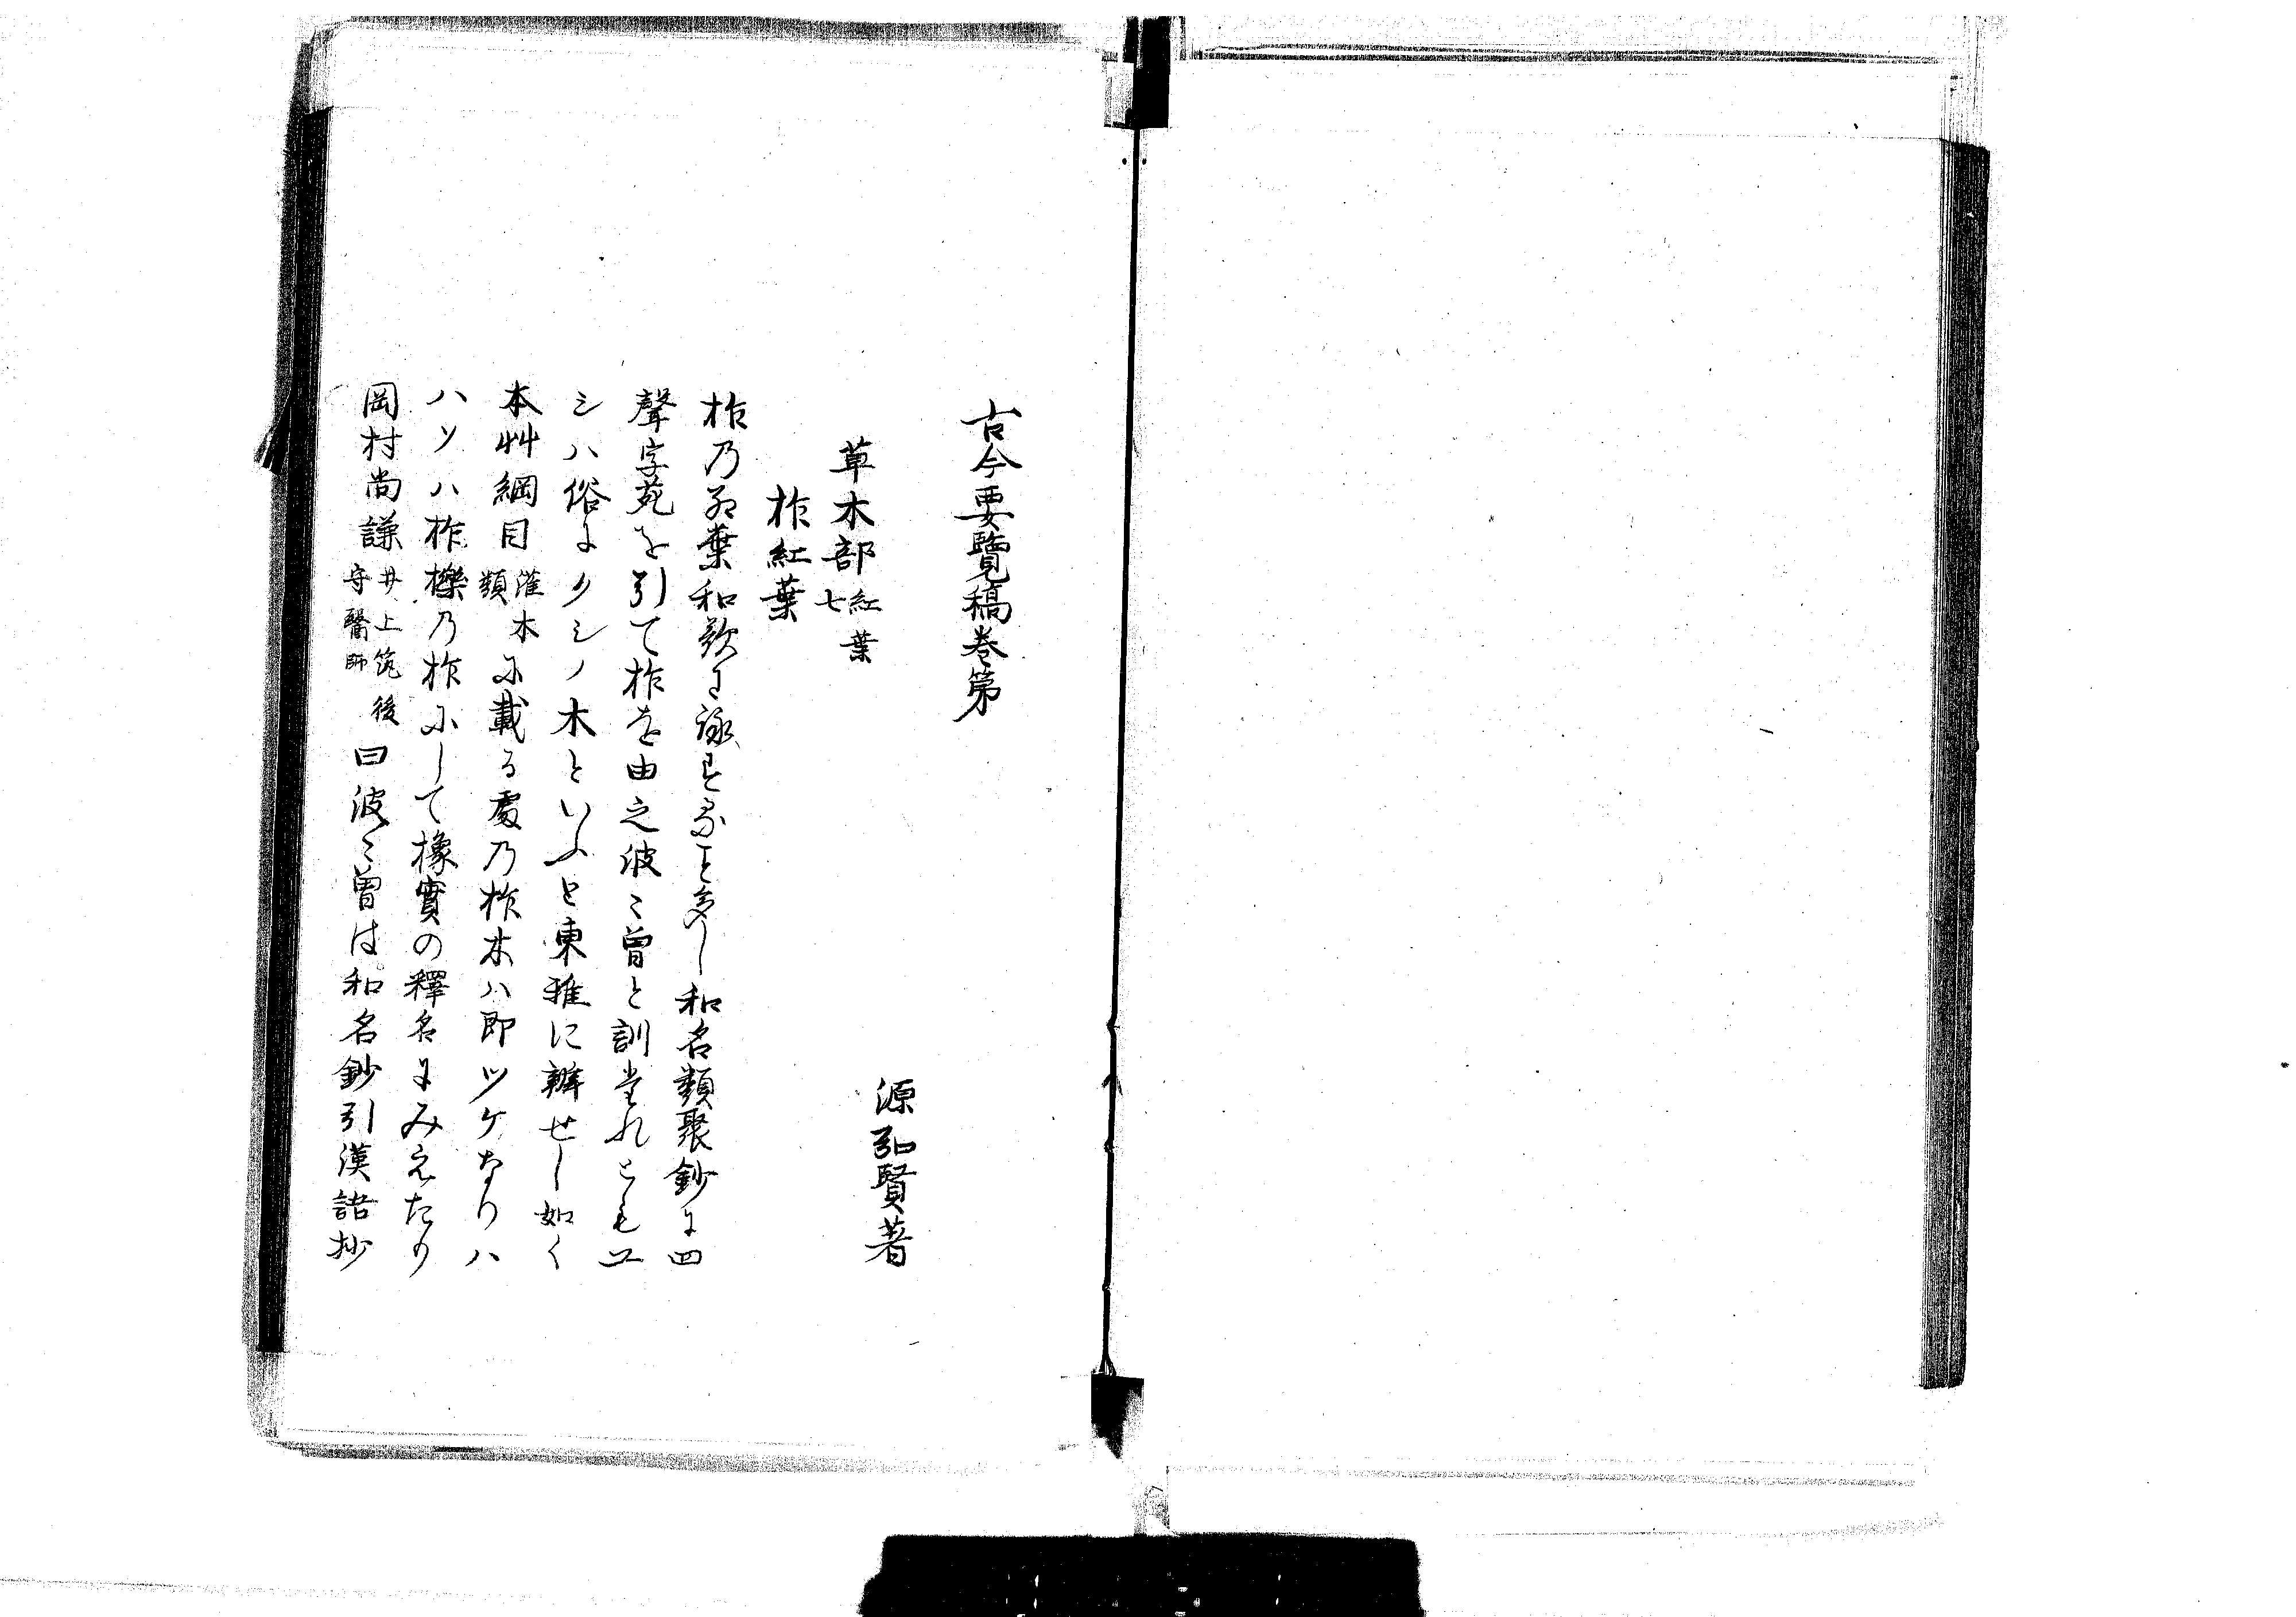 古今要覽稿巻第
源弘賢著
草木部紅葉七
柞紅葉
柞乃紅葉和歌に詠する事多し和名類聚鈔に四
聲字苑を引て柞を由之波ゝ曾と訓たれともユ
シハ俗にクシノ木といふと東雅に辨せし如く
本艸綱目灌木類に載る處乃柞木ハ即ツケなりハ
ハソハ柞櫟乃柞にして橡實の釋名にみえたり
岡村尚謙井上筑後守醫師曰波ゝ曾は和名鈔引漢語抄